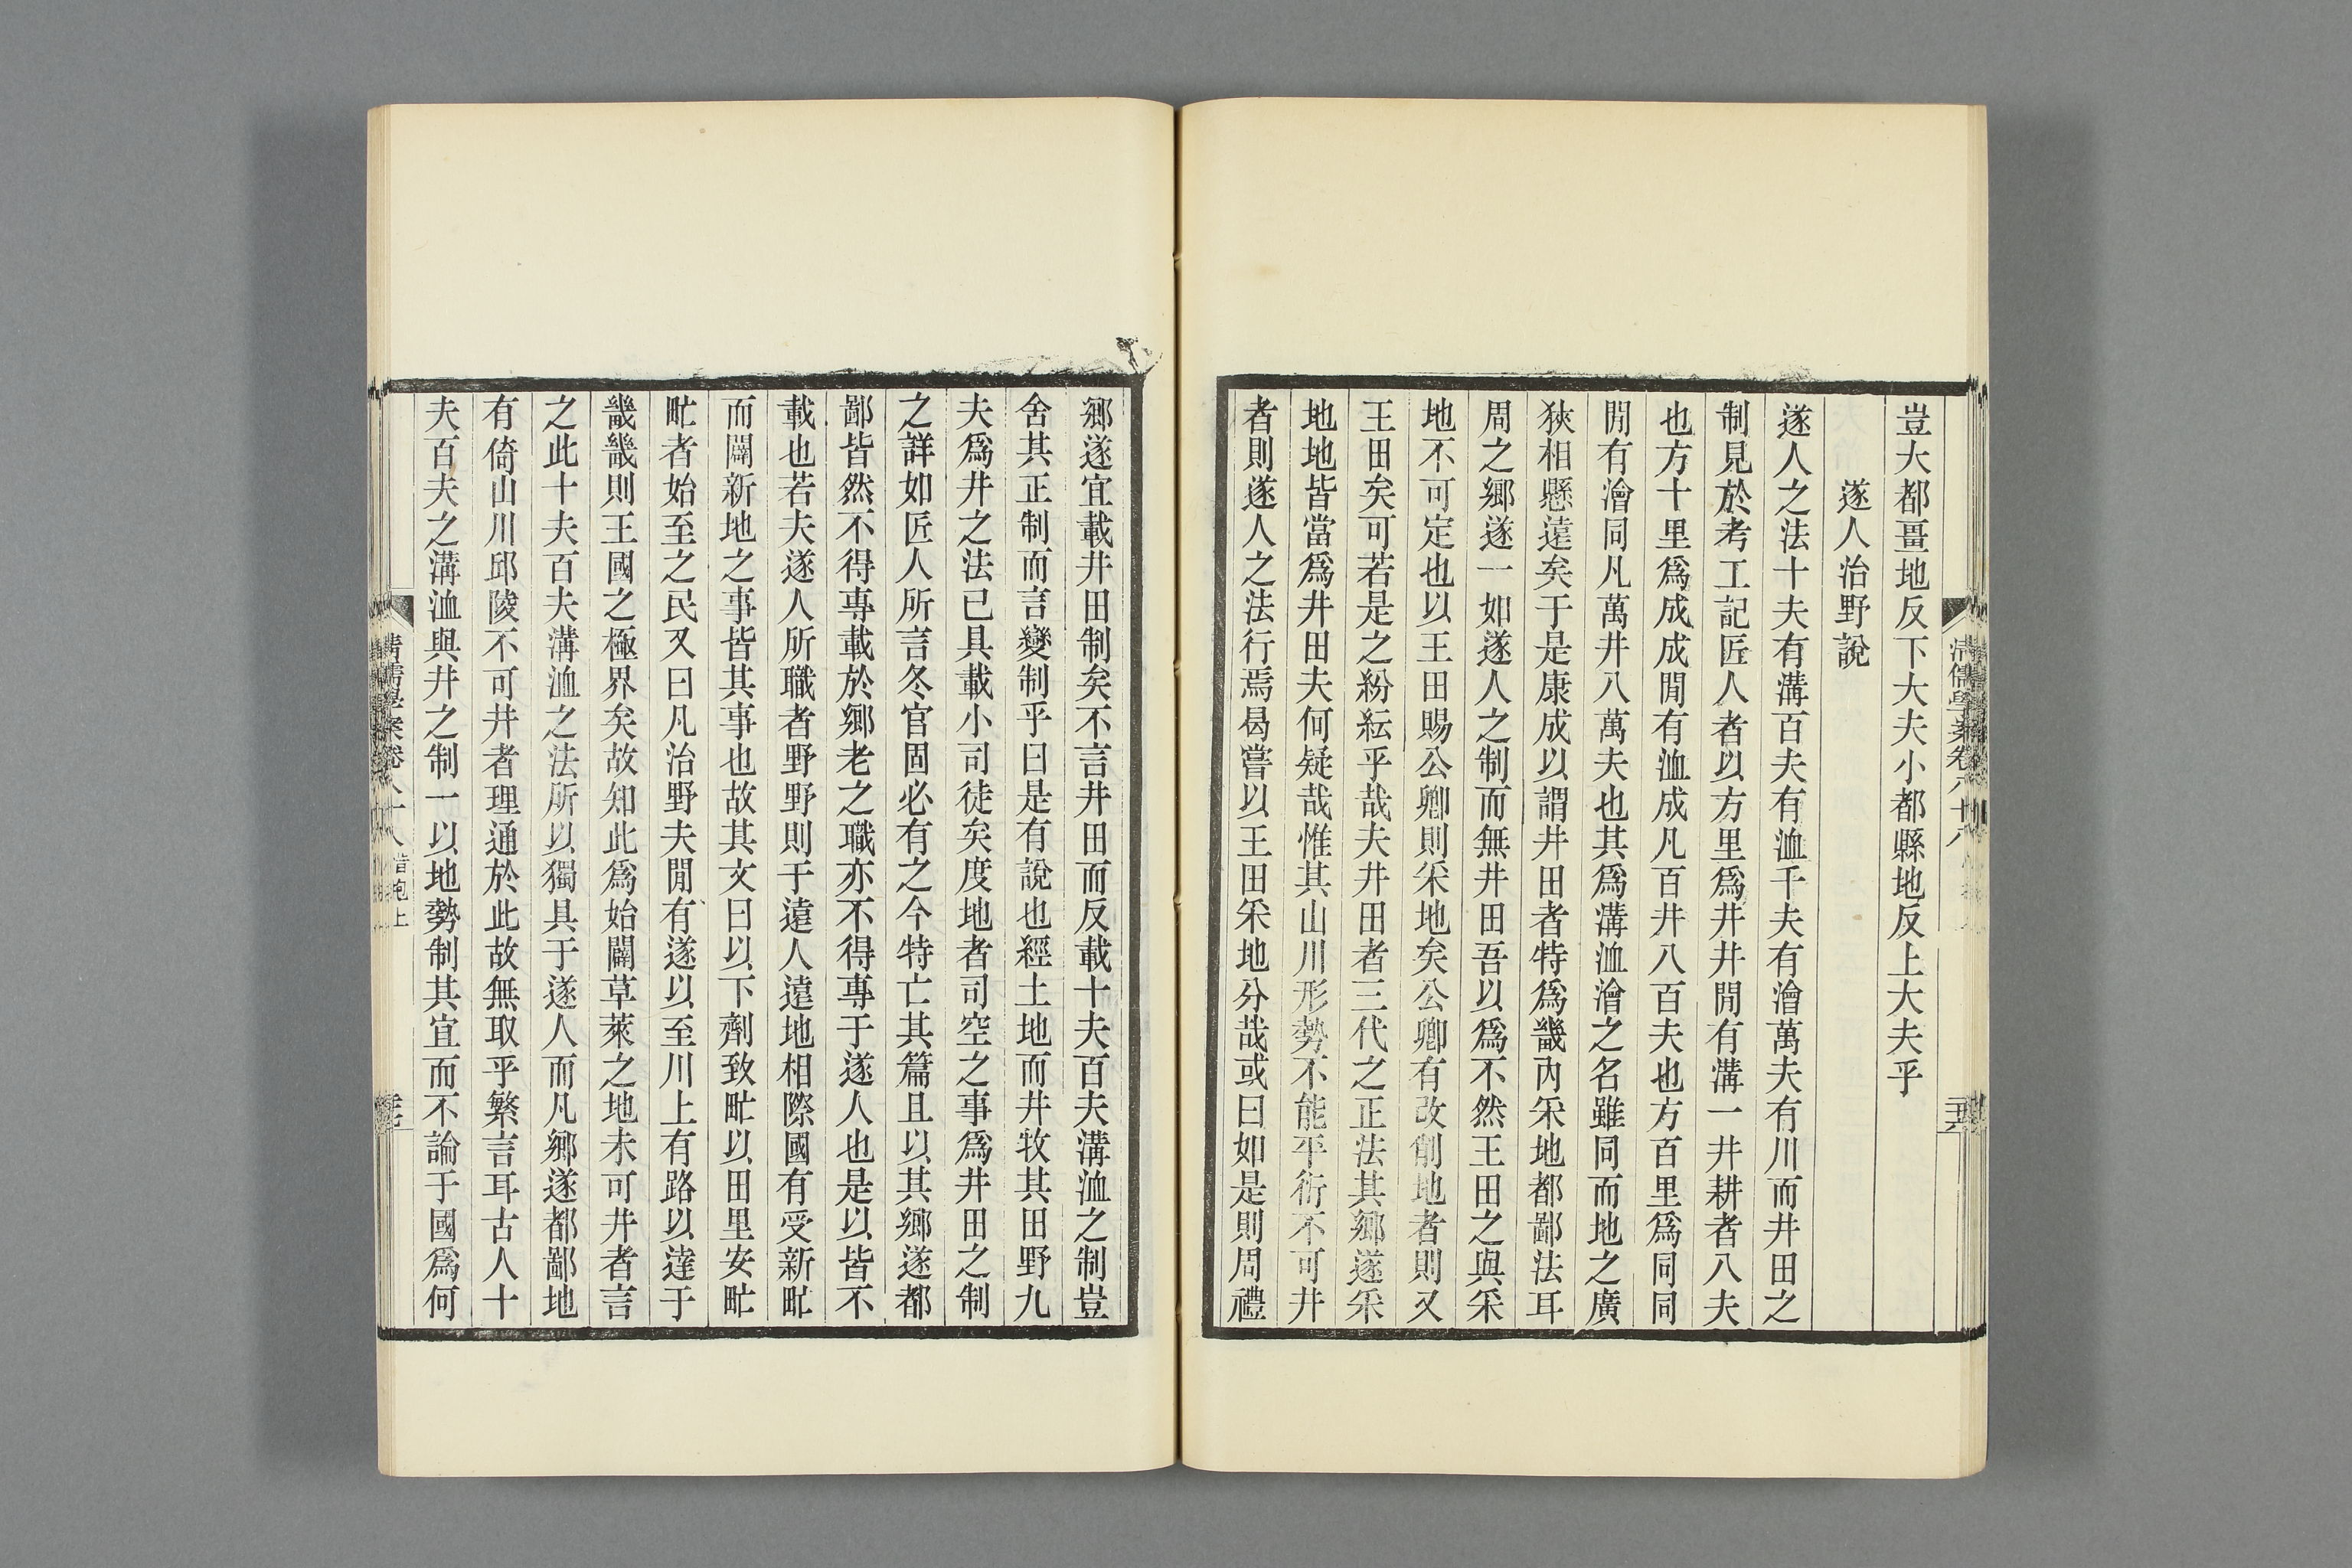 豈大都畺地反下大夫小都縣地反上大夫乎
遂人治野說
遂人之法十夫有溝百夫有洫千夫有澮萬夫有川而井田之
制見於考工記匠人者以方里爲井井閒有溝一井耕者八夫
也方十里爲成成閒有洫成凡百井八百夫也方百里爲同同
閒有澮同凡萬井八萬夫也其爲溝洫澮之名雖同而地之廣
狹相懸遠矣于是康成以謂井田者特爲畿內采地都鄙法耳
周之鄉遂一如遂人之制而無井田吾以爲不然王田之與采
地不可定也以王田賜公卿則采地矣公卿有改削地者則又
王田矣可若是之紛紜乎哉夫井田者三代之正法其鄉遂采
地地皆當爲井田夫何疑哉惟其山川形勢不能平衍不可井
者則遂人之法行焉曷嘗以王田采地分哉或曰如是則周禮
清儒學案卷八十八
鄉遂宜載井田制矣不言井田而反載十夫百夫溝洫之制豈
舍其正制而言變制乎曰是有說也經土地而井牧其田野九
夫爲井之法已具載小司徒矣度地者司空之事爲井田之制
之詳如匠人所言冬官固必有之今特亡其篇且以其鄉遂都
鄙皆然不得專載於鄉老之職亦不得專于遂人也是以皆不
載也若夫遂人所職者野野則于遠人遠地相際國有受新甿
而闢新地之事皆其事也故其文曰以下劑致甿以田里安甿
甿者始至之民又曰凡治野夫閒有遂以至川上有路以達于
畿畿則王國之極界矣故知此爲始闢草萊之地未可井者言
之此十夫百夫溝洫之法所以獨具于遂人而凡鄉遂都鄙地
有倚山川邱陵不可井者理通於此故無取乎繁言耳古人十
夫百夫之溝洫與井之制一以地勢制其宜而不論于國爲何
清儒學案卷八十八 惜抱上